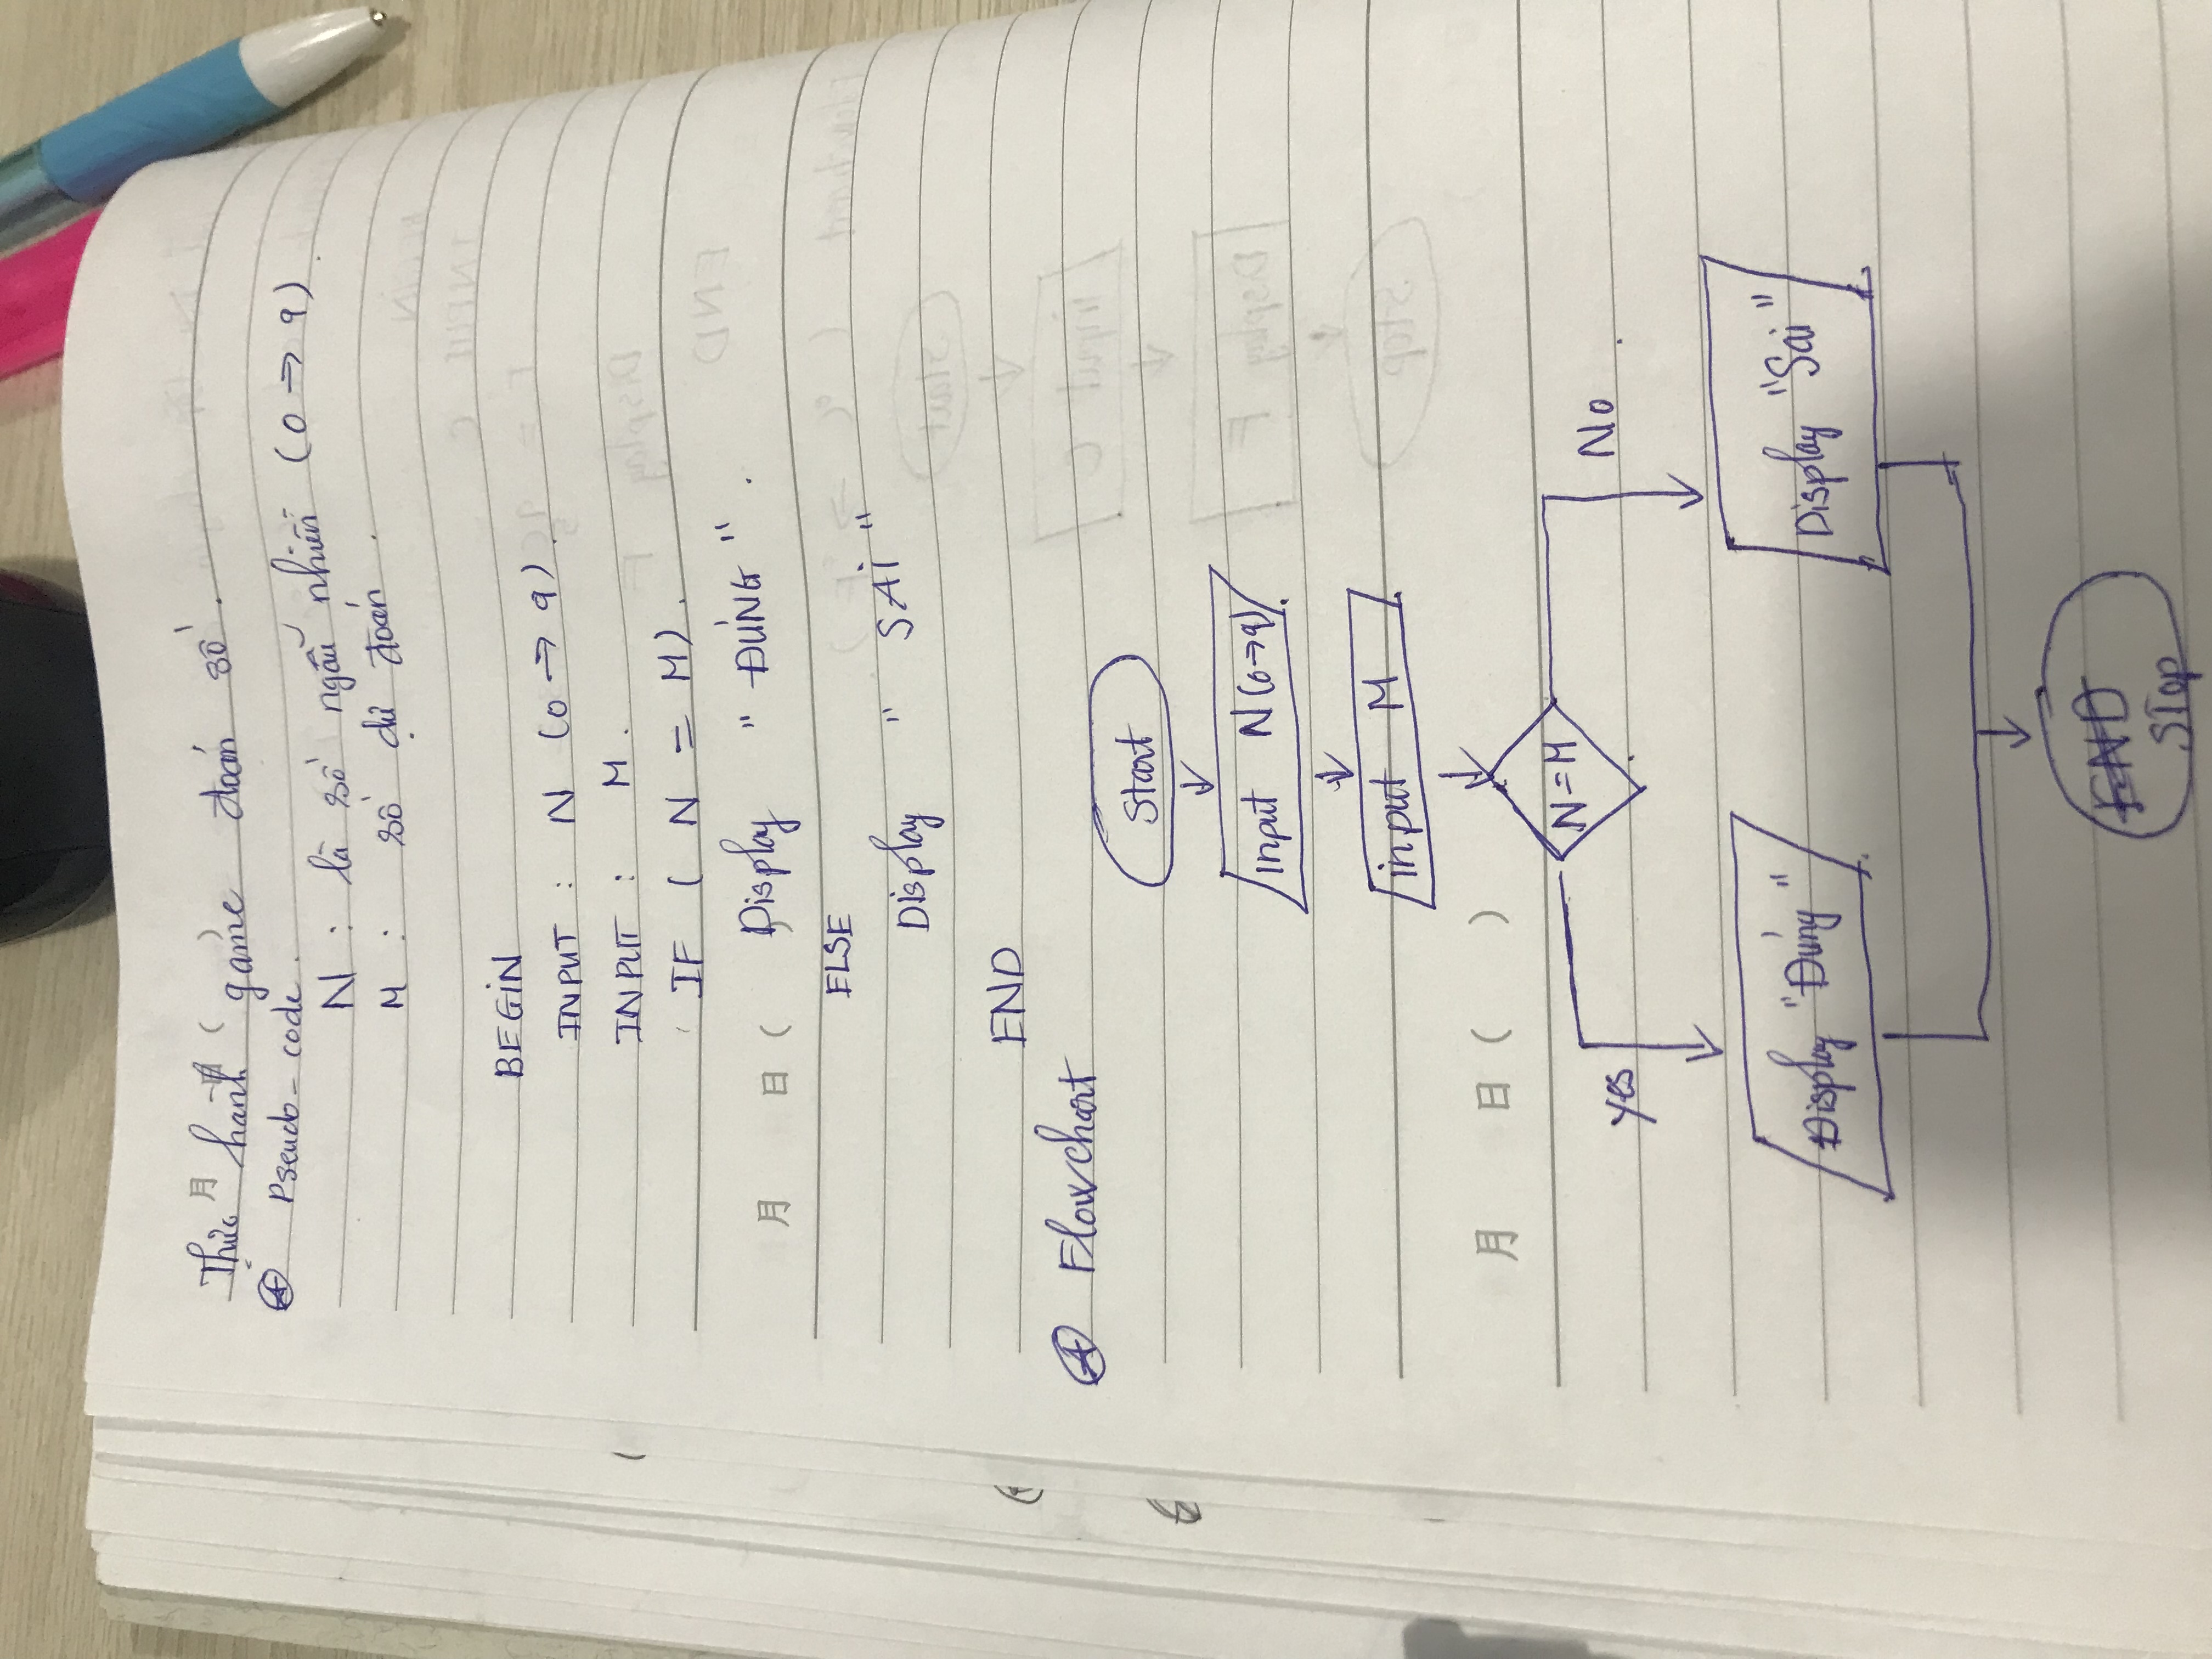 月 日 ( )
Thực hành game đoán số.
Pseudo-code.
N : là số ngẫu nhiên (0 → 9).
M : số dự đoán.
BEGIN
INPUT : N (0 → 9).
INPUT : M.
IF ( N = M).
月 日 ( )
Display " ĐÚNG ".
ELSE
Display " SAI "
END
Flowchart
Start
Input N(0→9)
input M
月 日 ( )
N=M
yes
No
Display "Đúng"
Display "Sai"
END
STop